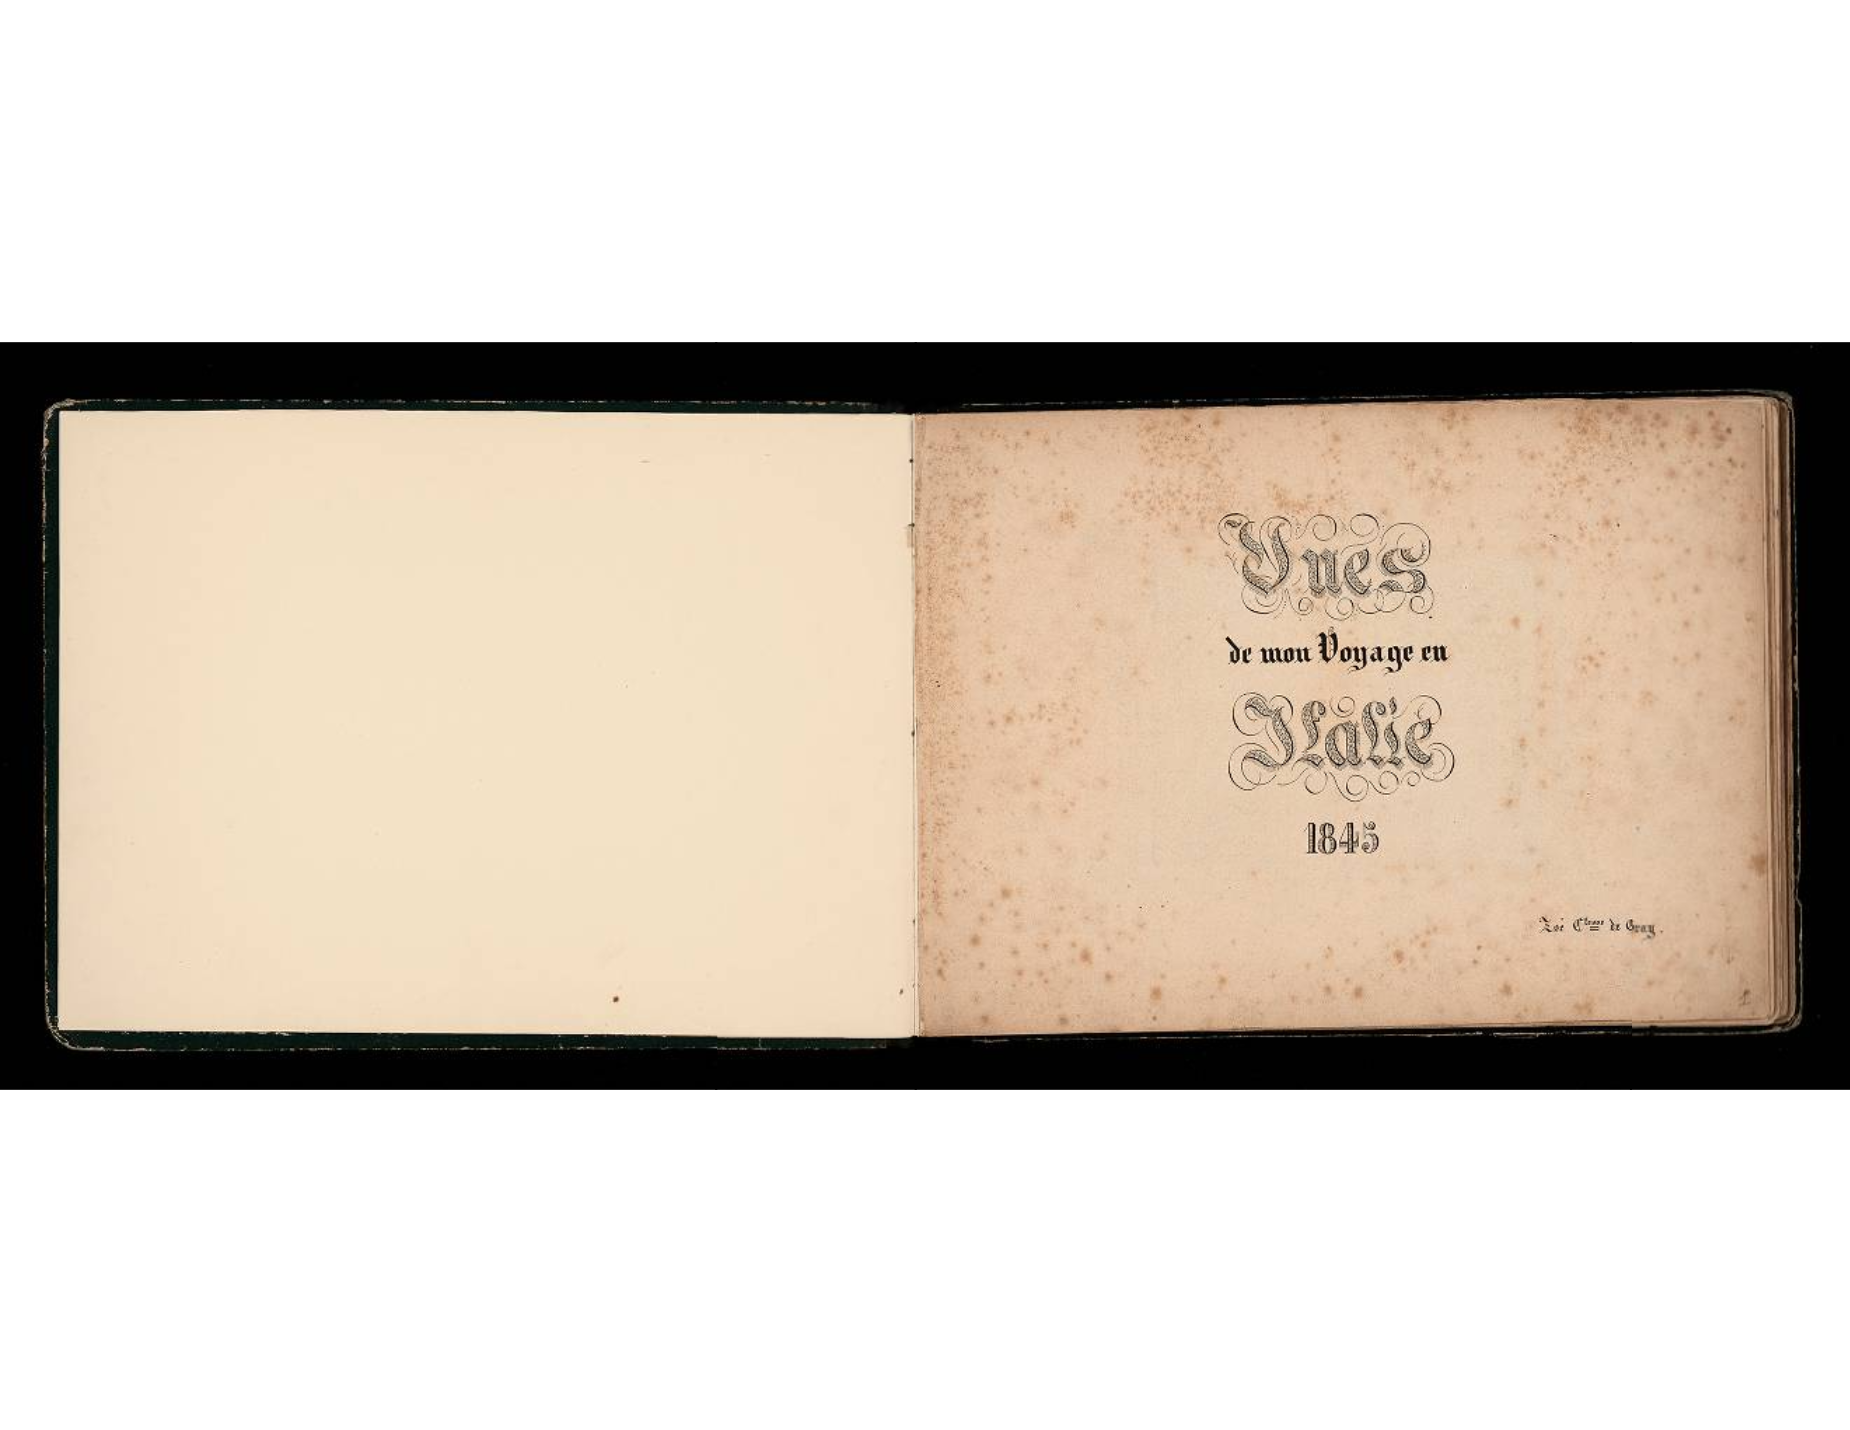 Vues
de mon Voyage en
Italie
1845
Zoé C^tesse de Gray.
1